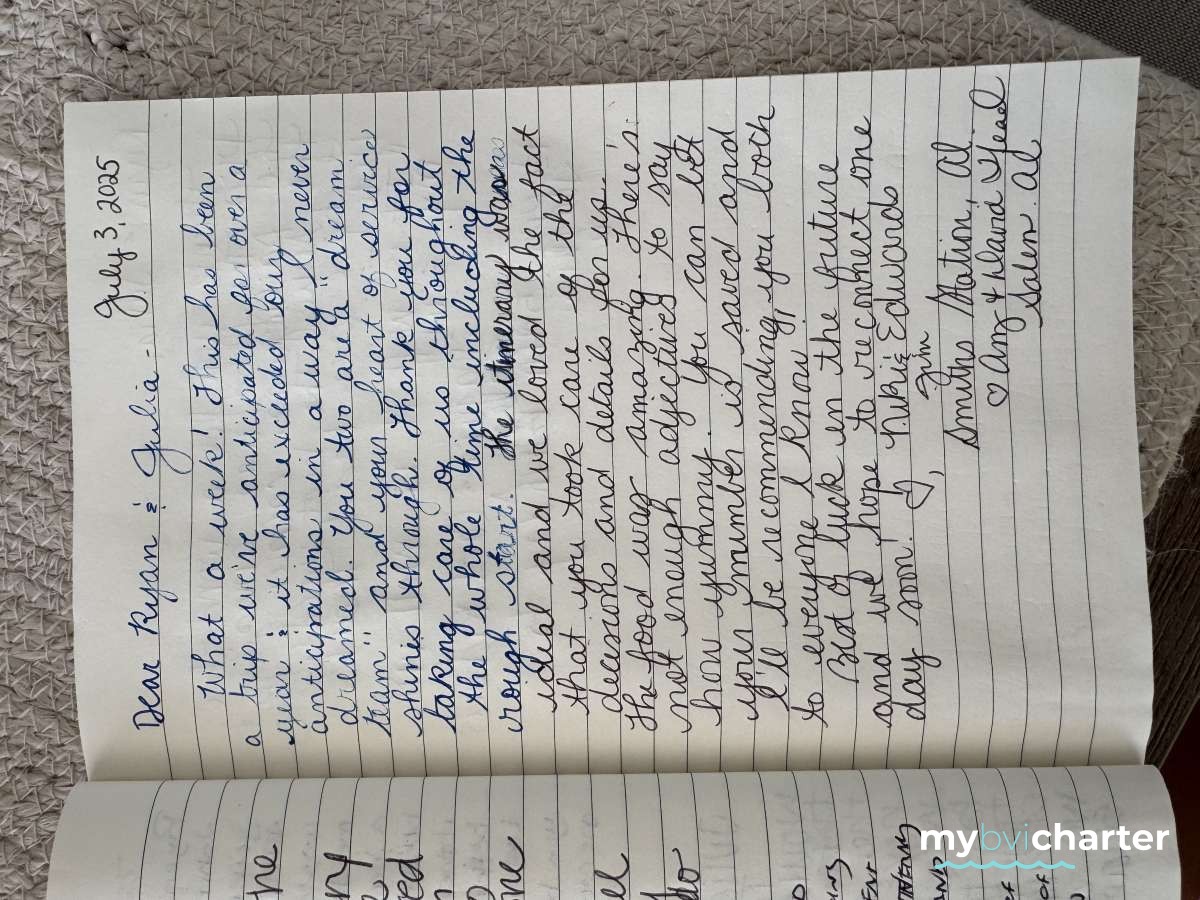 July 3, 2025
Dear Ryan & Julia -
What a week! This has been
a trip we've anticipated for over a
year & it has exceeded our
anticipations in a way I never
dreamed. You two are a "dream
team" and your heart of service
shines through. Thank you for
taking care of us throughout
the whole time including the
rough start. The itinerary was
ideal and we loved the fact
that you took care of the
decisions and details for us.
The food was amazing. There's
not enough adjectives to say
how yummy. You can bet
your number is saved and
I'll be recommending you both
to everyone I know.
Best of luck in the future
and we hope to reconnect one
day soon! Nikki & Edwards
♡, Jim
Smiths Station, Al
♡ Amy & David Yeael
Salem, al
ne
ny
ed
ne
ell
do
OF
OF
mybvicharter